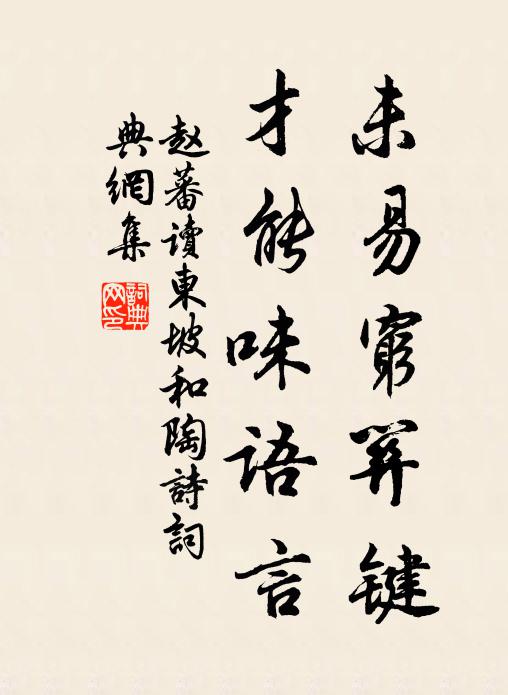 未易窮筭键
才能味語言
赵蕃讀東坡和陶詩詞
典網集
詞典
网印